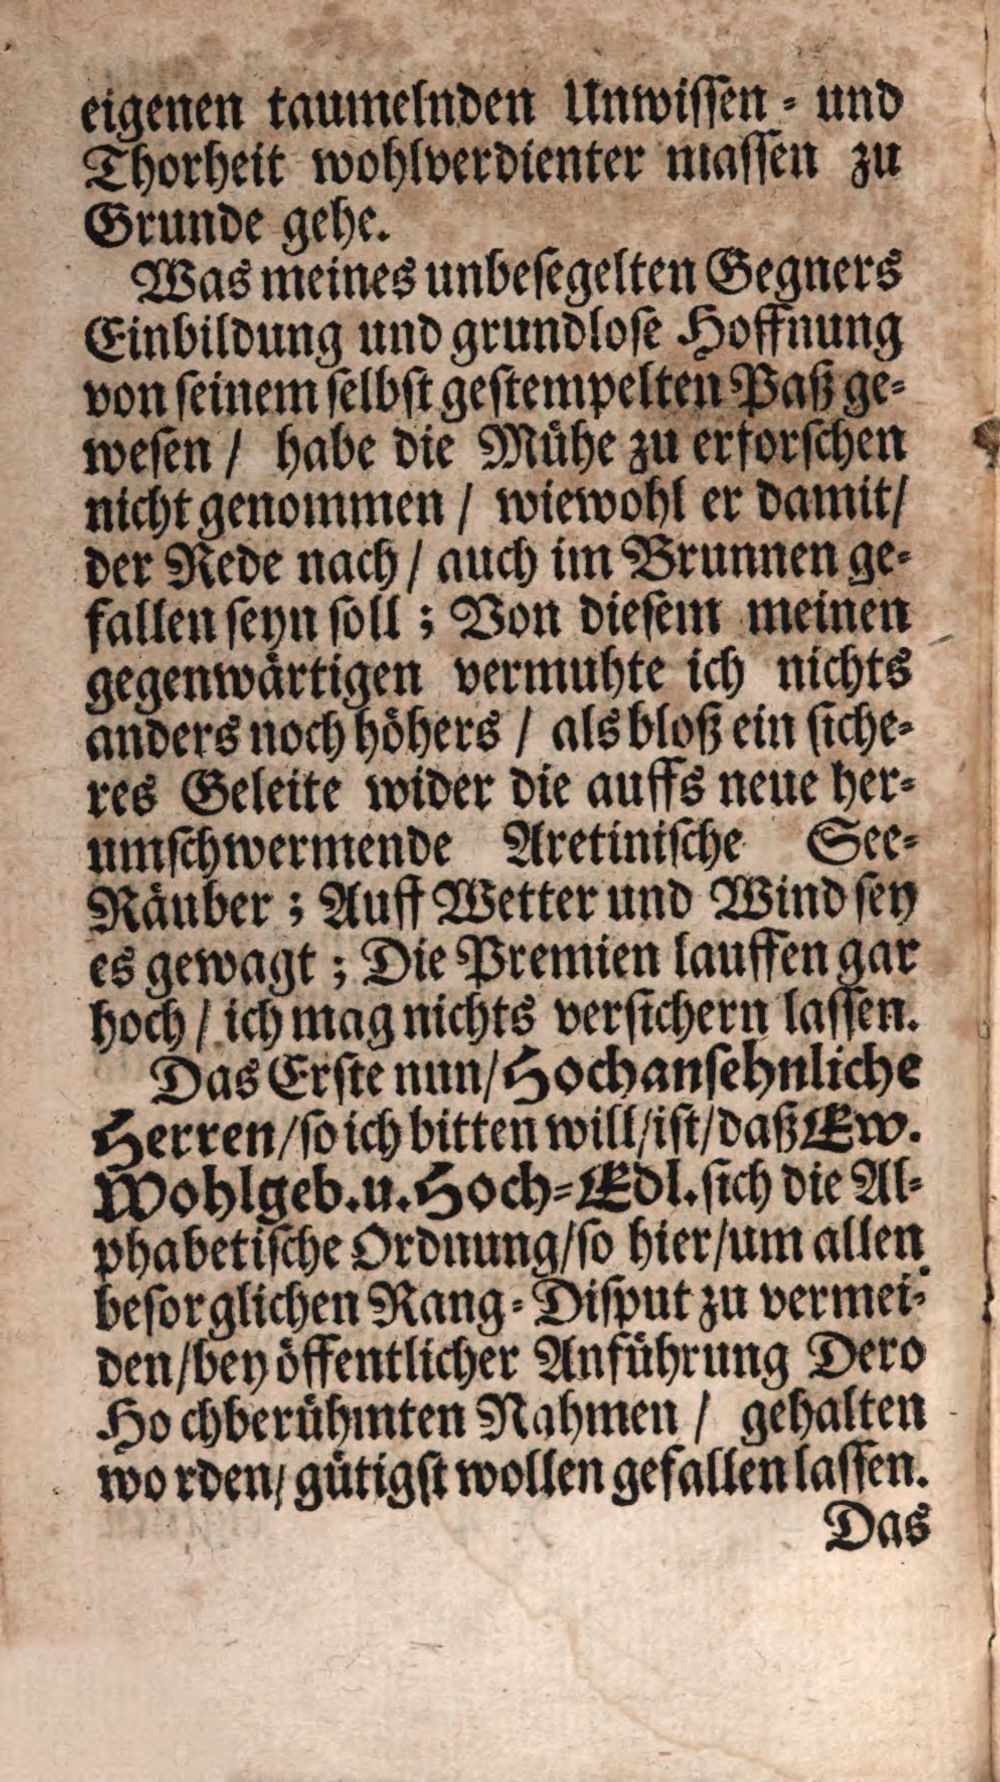 eigenen taumelnden Unwissen- und
Thorheit wohlverdienter massen zu
Grunde gehe.
Was meines unbesegelten Gegners
Einbildung und grundlose Hoffnung
von seinem selbst gestempelten Paß ge-
wesen / habe die Mühe zu erforschen
nicht genommen / wiewohl er damit/
der Rede nach / auch im Brunnen ge-
fallen seyn soll ; Von diesem meinen
gegenwärtigen vermuhte ich nichts
anders noch höhers / als bloß ein siche-
res Geleite wider die auffs neue her-
umschwermende Aretinische See-
Räuber ; Auff Wetter und Wind sey
es gewagt ; Die Premien lauffen gar
hoch / ich mag nichts versichern lassen.
Das Erste nun/ Hochansehnliche
Herren/ so ich bitten will/ ist/ daß Ew.
Wohlgeb. u. Hoch-Edl. sich die Al-
phabetische Ordnung/ so hier/ um allen
besorglichen Rang-Disput zu vermei-
den/ bey öffentlicher Anführung Dero
Hochberühmten Nahmen / gehalten
worden/ gütigst wollen gefallen lassen.
Das